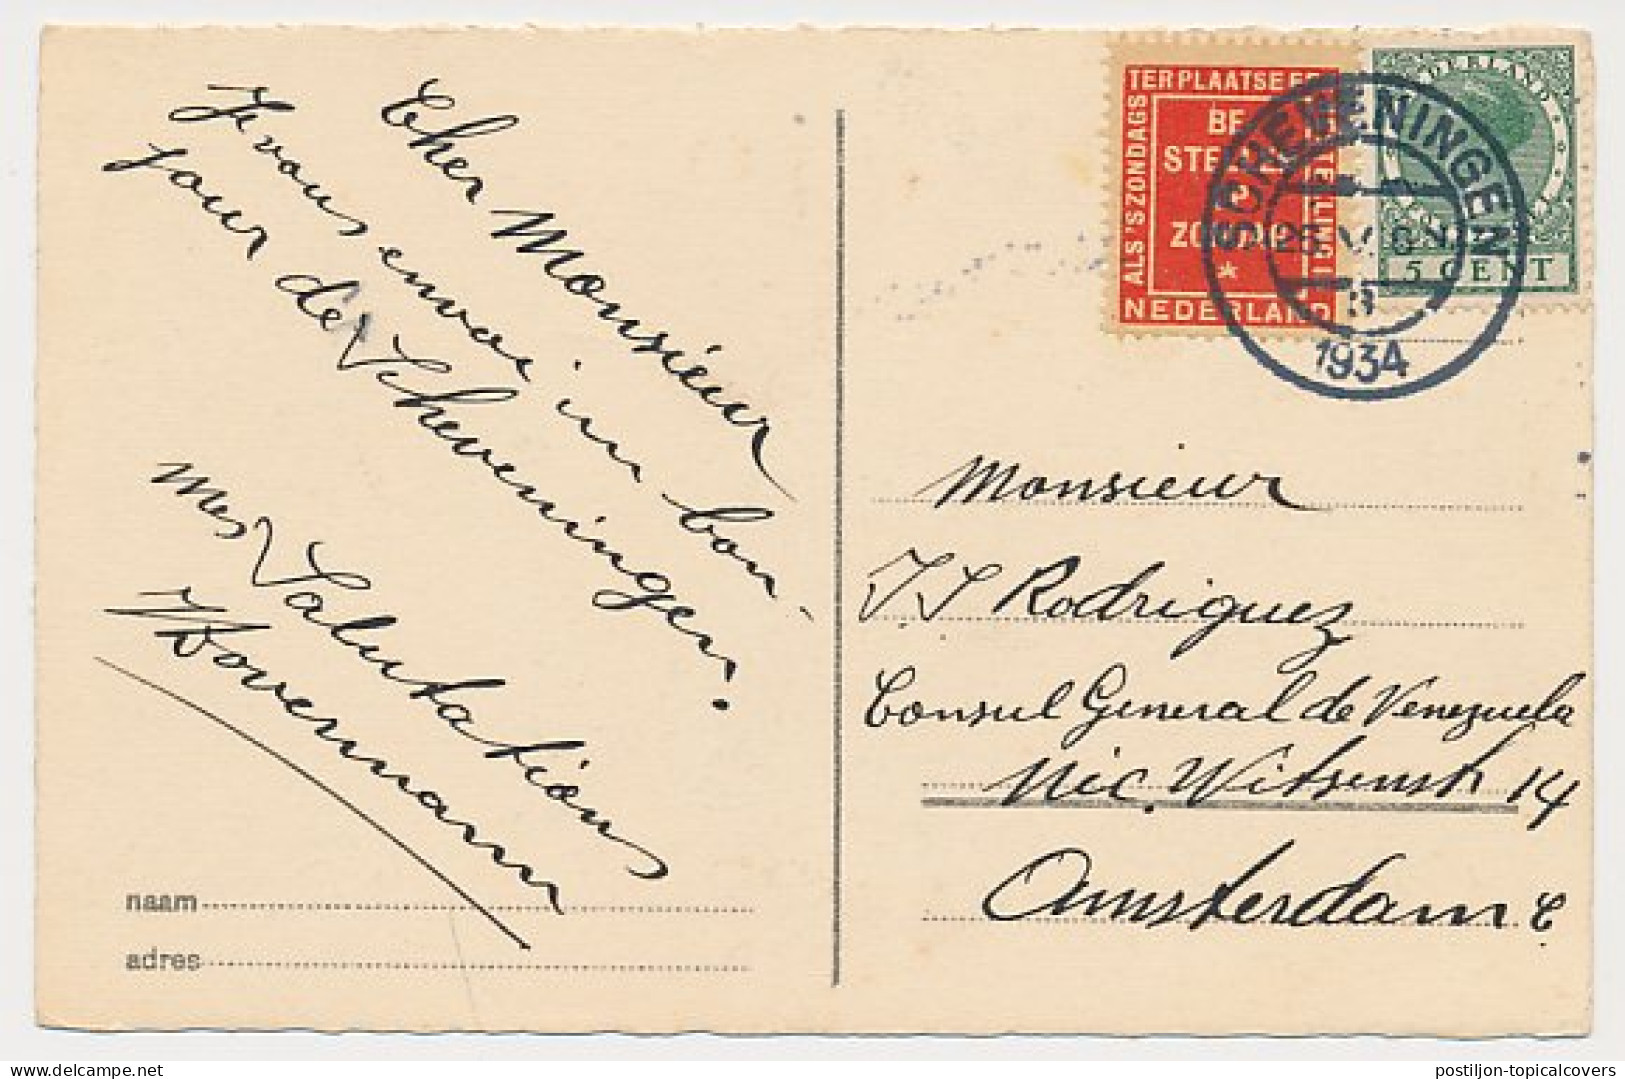 Cher Monsieur
Je vous envoi un bon-
jour de Scheveningen.
mes Salutations
naam
adres
ALS 'S ZONDAGS
TER PLAATSE
BE
STE
ZO
NEDERLAND
5 CENT
SCHEVENINGEN
1934
Monsieur
Rodriguez
Consul General de Venezuela
Nic. Witsenstr 14
Amsterdam C
postiljon-topicalcovers